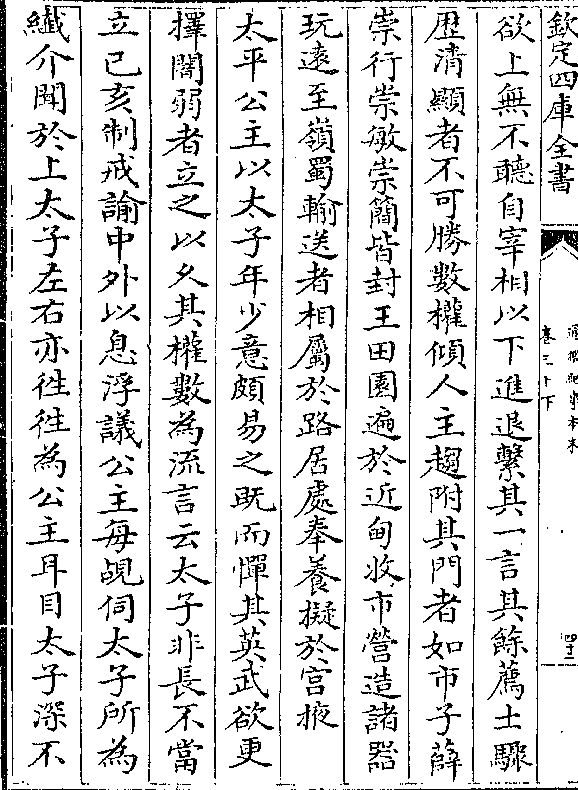 欽定四庫全書
通鑑紀事本末
卷三十下
四十二
欲上無不聽自宰相以下進退繫其一言其餘薦士驟
歴清顯者不可勝數權傾人主趨附其門者如市子薛
崇行崇敏崇簡皆封王田園遍於近甸收市營造諸器
玩遠至嶺蜀輸送者相屬於路居處奉養擬於宫掖
太平公主以太子年少意頗易之既而憚其英武欲更
擇闇弱者立之以久其權數為流言云太子非長不當
立己亥制戒諭中外以息浮議公主每覘伺太子所為
纎介聞於上太子左右亦徃徃為公主耳目太子深不